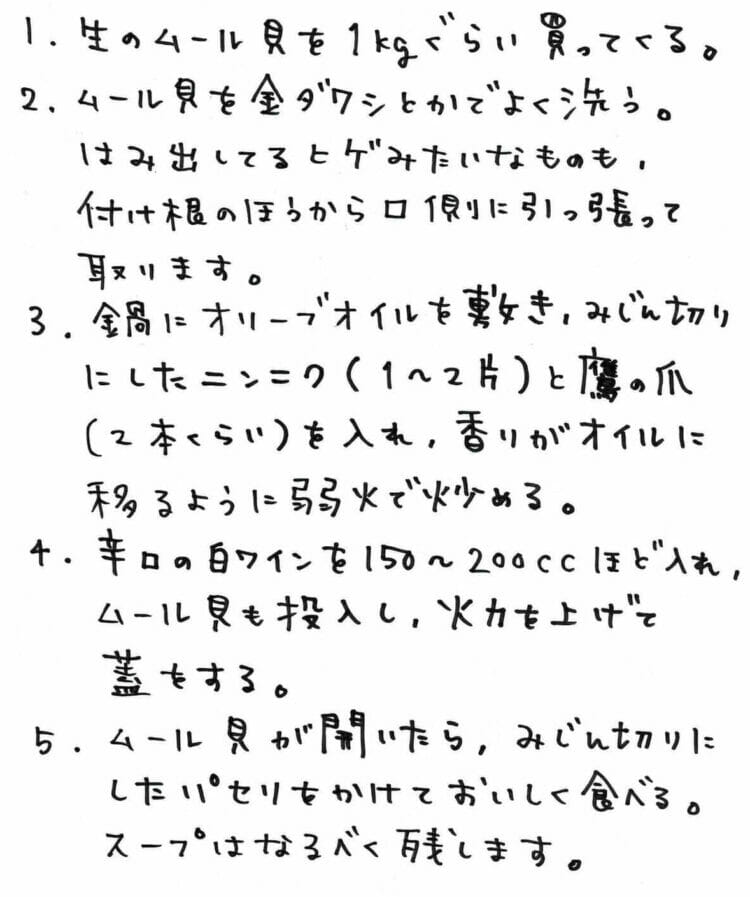 1. 生のムール貝を1kgぐらい買ってくる。
2. ムール貝を金ダワシとかでよく洗う。
はみ出してるトゲみたいなものも,
付け根のほうから口側に引っ張って
取ります。
3. 鍋にオリーブオイルを敷き,みじん切り
にしたニンニク(1〜2片)と鷹の爪
(2本くらい)を入れ,香りがオイルに
移るように弱火で炒める。
4. 辛口の白ワインを150〜200ccほど入れ,
ムール貝も投入し,火力を上げて
蓋をする。
5. ムール貝が開いたら,みじん切りに
したパセリをかけておいしく食べる。
スープはなるべく残します。